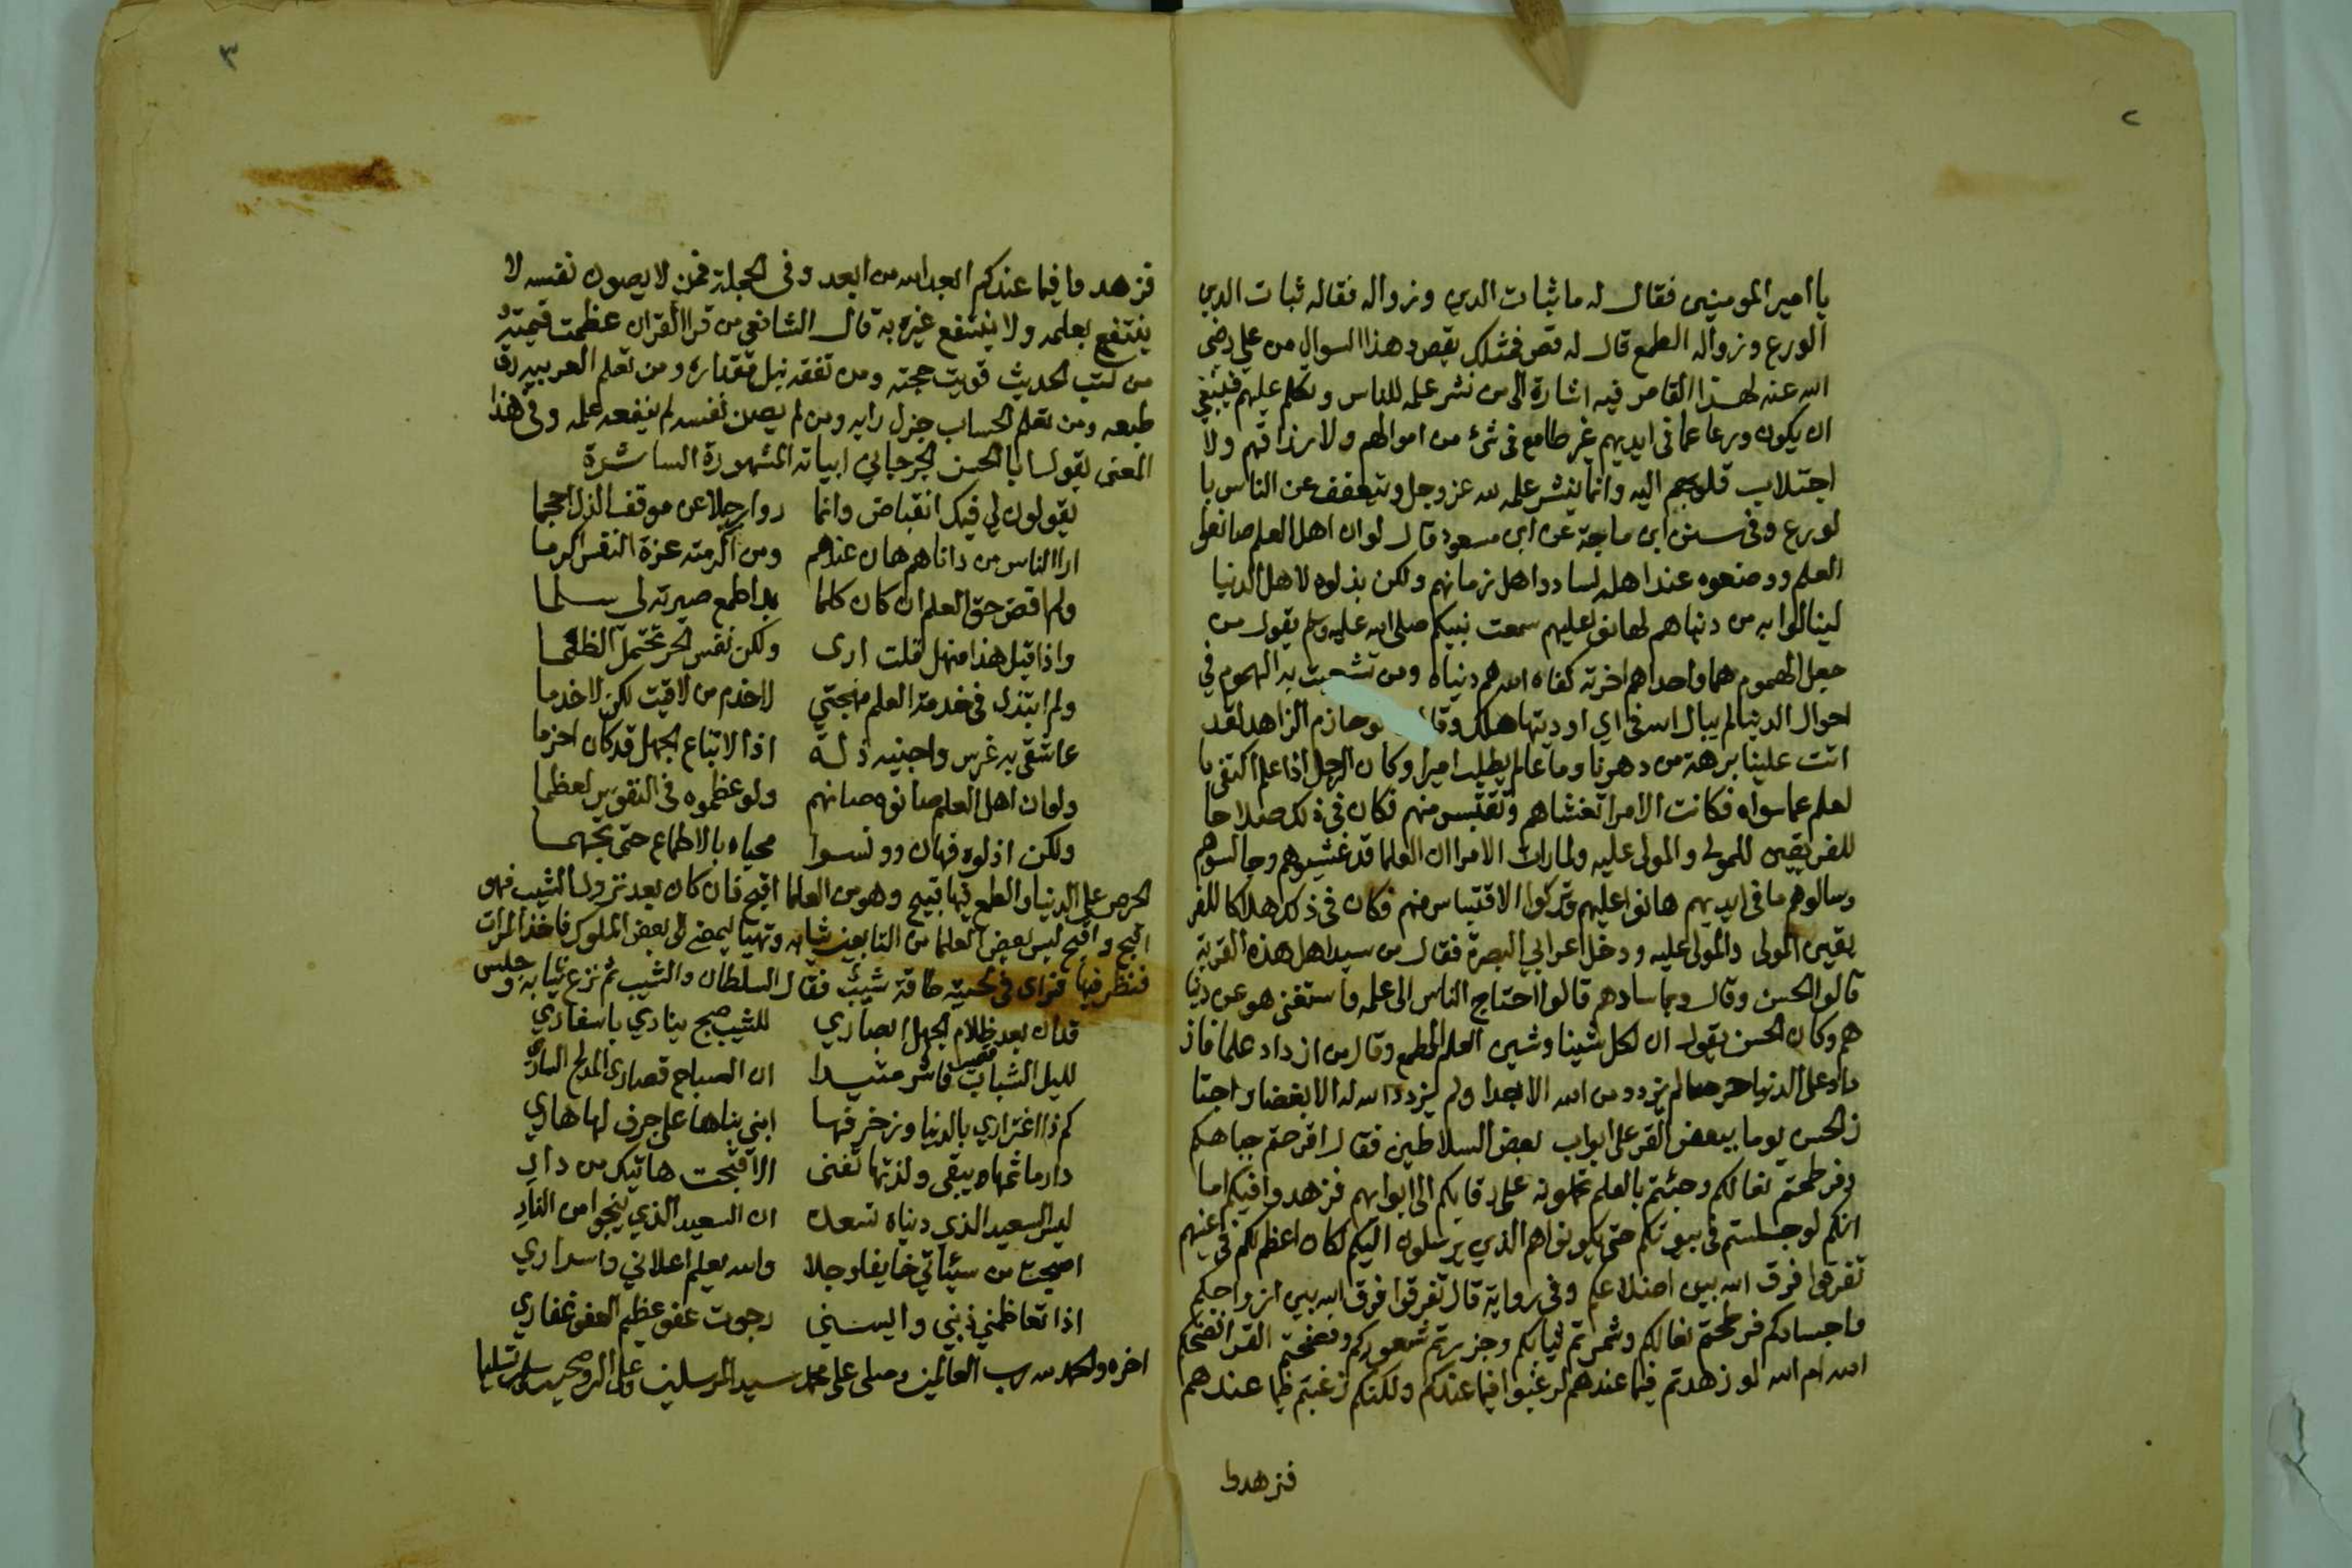 ٢
يا امير المومنين فقال له ما ثبات الدين وزواله فقال ثبات الدين
الورع وزواله الطمع قال له قص فمثلك يقص وهذا السوال من علي رضى
الله عنه لهذا القاص فيه اشارة الى من نشر علمه للناس وتكلم عليهم فينبغي
ان يكون ورعا عما فى ايديهم غير طامع فى شئ من اموالهم ولا ارزاقهم ولا
اجتلاب قلوبهم اليه وانما ينشر علمه لله عز وجل ويتعفف عن الناس با
لورع وفى سنن ابن ماجة عن ابن مسعود قال لو ان اهل العلم صانوا
العلم ووضعوه عند اهله لسادوا اهل زمانهم ولكن بذلوه لاهل الدنيا
لينالوا به من دنياهم فهانوا عليهم سمعت نبيكم صلى الله عليه وسلم يقول من
جعل الهموم هما واحدا هم اخرته كفاه الله هم دنياه ومن تشعبت به الهموم في
احوال الدنيا لم يبال الله فى اي اوديتها هلك وقال ابو حازم الزاهد لقد
اتت علينا برهة من دهرنا وما عالم يطلب اميرا وكان الرجل اذا علم اكتفى با
لعلم عما سواه فكانت الامرا تغشاهم وتقتبس منهم فكان فى ذلك صلاحا
للفريقين للمولى والمولى عليه ولما رات الامرا ان العلما قد غشيوهم وجالسوهم
وسالوهم ما فى ايديهم هانوا عليهم وتركوا الاقتباس منهم فكان فى ذلك هلاكا للفر
يقين المولى والمولى عليه ودخل اعرابي البصرة فقال من سيد اهل هذه القرية
قالوا الحسن وقال وبما سادهم قالوا احتاج الناس الى علمه واستغنى هو عن دنيا
هم وكان الحسن يقول ان لكل شينا وشين العلم الطمع وقال من ازداد علما فاز
داد على الدنيا حرصا لم يزدد من الله الا بعدا ولم يزدد الله له الا بغضا واجتا
ز الحسن يوما ببعض القر على ابواب بعض السلاطين فقال اقرحتم جباهكم
وفرطحتم نعالكم وجئتم بالعلم تحملونه على رقابكم الى ابوابهم فزهدوا فيكم اما
انكم لو جلستم فى بيوتكم حتى يكونوا هم الذي يرسلون اليكم لكان اعظم لكم فى اعينهم
تفرقوا فرق الله بين اضلاعكم وفى رواية قال تفرقوا فرق الله بين ازواحكم
واجسادكم فرطحتم نعالكم وشمرتم ثيابكم وجززتم شعوركم وفضحتم القرا فضحكم
الله ام الله لو زهدتم فيما عندهم لرغبوا فيما عندكم ولكنكم رغبتم فيما عندهم
فزهدوا
٣
فزهدوا فيما عندكم ابعد الله من ابعد وفى الجملة فمن لا يصون نفسه لا
ينتفع بعلمه ولا ينتفع غيره به قال الشافعي من قرا القران عظمت قيمته
من كتب الحديث قويت حجته ومن تفقه نبل مقداره ومن تعلم العربيه رق
طبعه ومن تعلم الحساب جزل رايه ومن لم يصن نفسه لم ينفعه علمه وفى هذا
المعنى يقول ابا الحسن الجرجاني ابياته المشهورة السائرة
يقولون لي فيك انقباض وانما رواو رجلا عن موقف الذل احجما
ارا الناس من داناهم هان عندهم ومن اكرمته عزة النفس اكرما
ولم اقض حق العلم ان كان كلما بدا طمع صيرته لى سلما
واذا قيل هذا منهل قلت ارى ولكن نفس الحر تحتمل الظما
ولم ابتذل فى خدمة العلم مهجتي لاخدم من لاقيت لكن لاخدما
عاشقى به غرس واجنيه ذلة اذا لاتباع الجهل قد كان احزما
ولو ان اهل العلم صانوه صانهم ولو عظموه فى النفوس لعظما
ولكن اذلوه فهان ودنسوا محياه بالاطماع حتى تجهما
الحرص على الدنيا والطمع فيها قبيح وهو من العلما اقبح فان كان بعد نزول الشيب فهو
اقبح واقبح لبس بعض العلما من التابعين ثيابه وتهيا ليمضى الى بعض الملوك فاخذ المرات
فنظر فيها فراى فى لحيته طاقة شيب فقال السلطان والشيب ثم نزع ثيابه وجلس
قد ان بعد ظلام الجهل ابصاري للشيب صبح يناديني باسفاري
لليل الشباب قصير فاشر مبتدا ان الصباح قصارى المدلج السار
كم ذا اغتراري بالدنيا وزخرفها ابني بناها على جرف لها هاري
دار ماثمها يبقى ولذتها تفنى الا قبحت هاتيك من دار
ليس السعيد الذي دنياه تسعده ان السعيد الذي ينجوا من النار
اصبحت من سيئاتي خايفا وجلا والله يعلم اعلاني واسراري
اذا تعاظمني ذنبي وايسني رجوت عفو عظيم العفو غفاري
اخره والحمد لله رب العالمين وصلى على محمد سيد المرسلين وعلى اله وصحبه وسلم تسليما